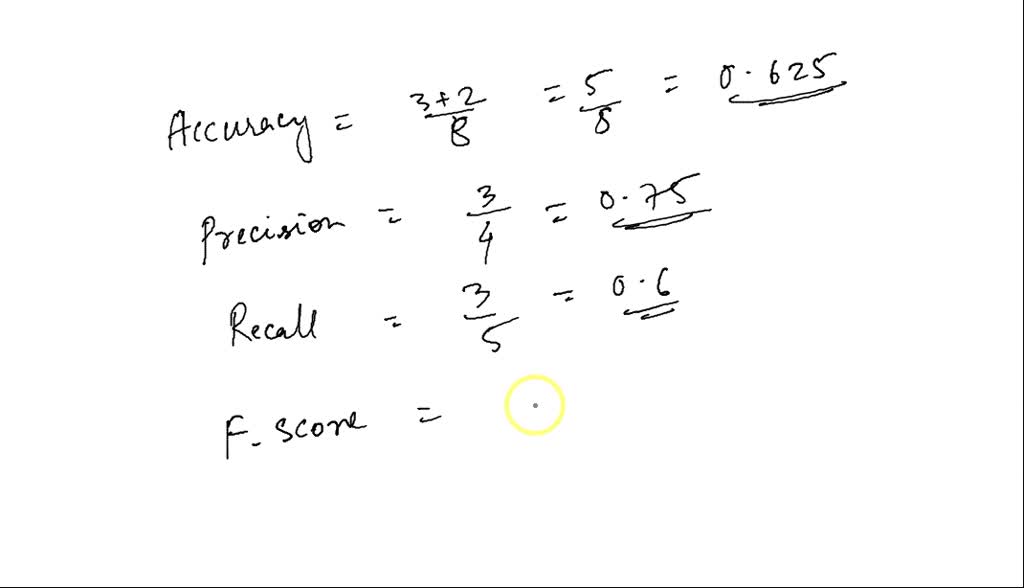 Accuracy = 3+2/8 = 5/8 = 0.625
Precision = 3/4 = 0.75
Recall = 3/5 = 0.6
F-score =